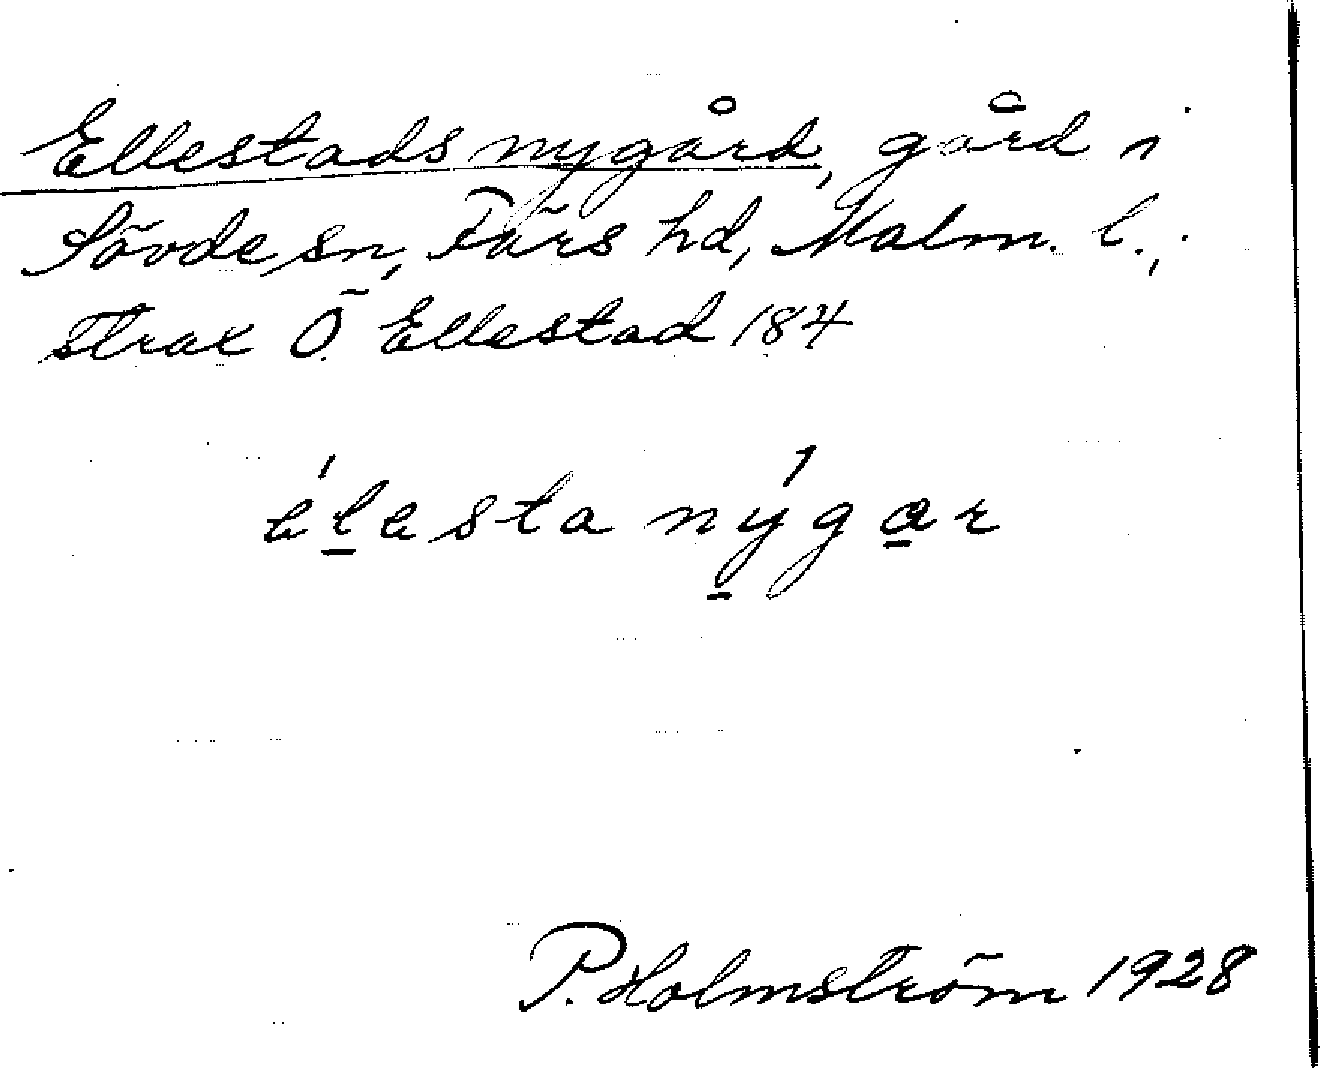 Ellestads nygård, gård i
Sövde sn, Färs hd, Malm. l.,
strax Ö. Ellestad 184
élesta nýgar
P. Holmström 1928